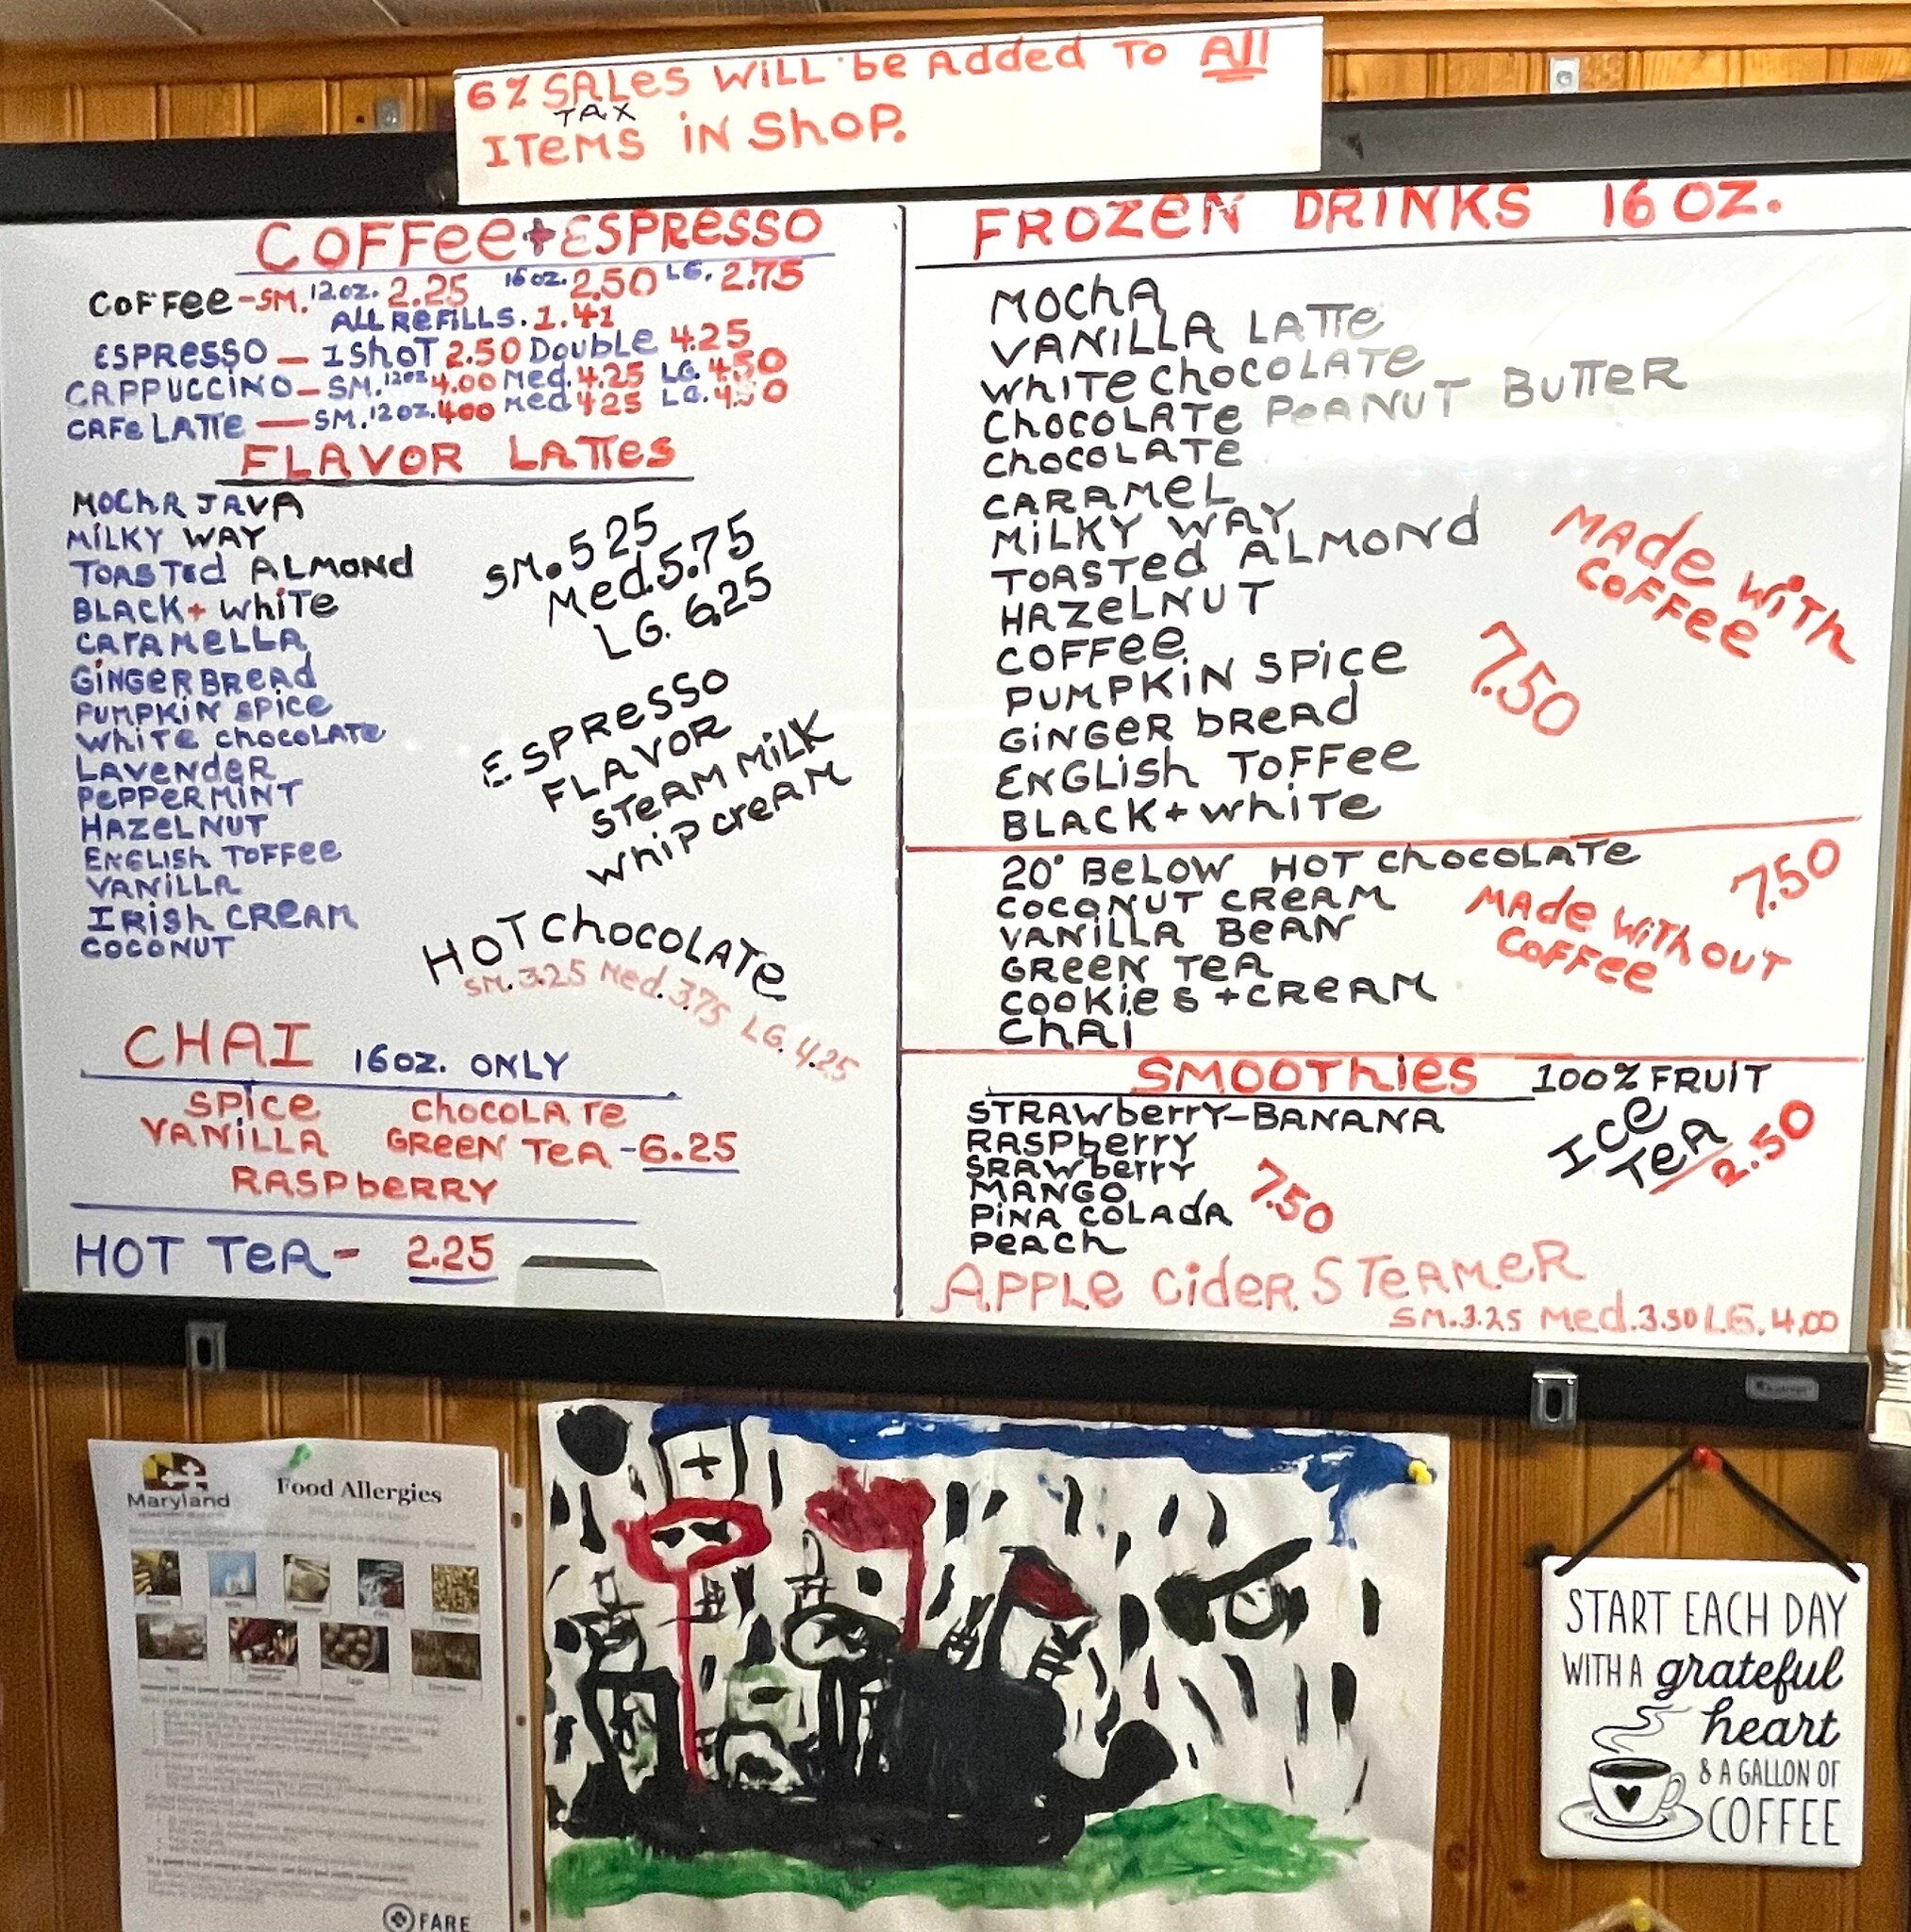 6% SALES WILL be Added To All
TAX
ITEMS iN ShoP.
COFFee+ESPResso
COFFee-SM. 12oz. 2.25 16oz. 2.50 LG. 2.75
ALL ReFiLLS. 1.41
ESPResso — 1ShoT 2.50 Double 4.25
CAPPUCCINO — SM. 12oz 4.00 Med. 4.25 LG. 4.50
CAFe LATTe — SM. 12oz. 400 Med 425 LG. 4.50
FLAVOR LATTes
MOCHA JAVA
MiLKY WAY
TOASTed ALMOND
BLACK+ WhiTe
CARAMeLLA
GiNGeRBReAd
PUMPKiN SPice
WhiTe ChocoLATe
LAVeNdeR
PePPeRMiNT
HAZeLNUT
ENGLish TOFFee
VANiLLA
IRish CReAM
COCONUT
SM. 5 25
Med. 5.75
LG. 6.25
ESPResso
FLAVOR
STeAM MiLK
Whip CreAM
HOT ChocoLATe
SM. 3.25 Med. 3.75 LG. 4.25
CHAI 16oz. ONLY
SPice ChocoLATe
VANiLLA GReeN TeA -6.25
RASPbeRRY
HOT TeA - 2.25
FROZeN DRINKS 16 OZ.
MOChA
VANiLLA LATTe
WhiTe ChocoLATe
ChocoLATe PeANUT BUTTeR
ChocoLATe
CARAMeL
MiLKY WAY
TOASTed ALMONd
HAZeLNUT
COFFee
PUMPKiN SPice
GiNGeR bReAd
ENGLish ToFFee
BLACK+white
MAde WiTh
COFFee
7.50
20° BeLOW HOT ChocoLATe
COCONUT CReAM
VANiLLA BeAN
GReeN TeA
COOKieS +CReAM
ChAi
7.50
MAde WiThouT
COFFee
SMOOThies 100% FRUiT
STRAWberrY-BANANA
RASPberrY
SRAWberrY
MANGO
PiNA COLAdA
PeACh
7.50
ICe
TeA
2.50
APPLe CideR STeAMeR
SM. 3.25 Med. 3.50 LG. 4.00
Maryland
Food Allergies
FARE
START EACH DAY
WITH A grateful
heart
& A GALLON OF
COFFEE